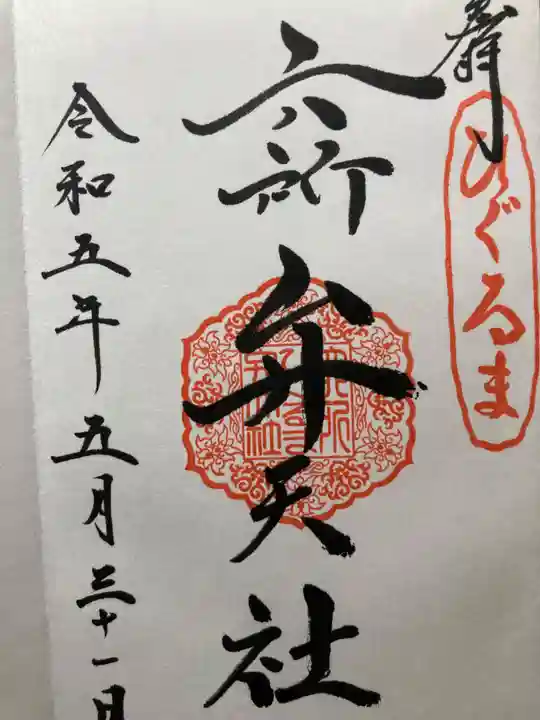 奉拝
ひぐるま
六所弁天社
令和五年五月三十一日